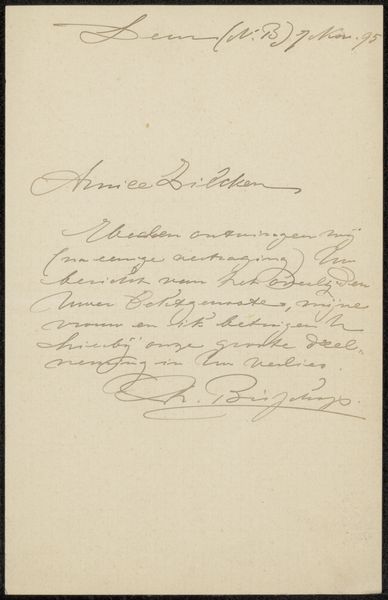 Leur (N. B) 7 Nov. 95
Amice Zilcken
Heden ontvingen wij
(na eenige vertraging) Uw
bericht van het overlijden
Uwer Echtgenoote, mijne
vrouw en ik betuigen U
hierbij onze groote deel-
neming in Uw verlies.